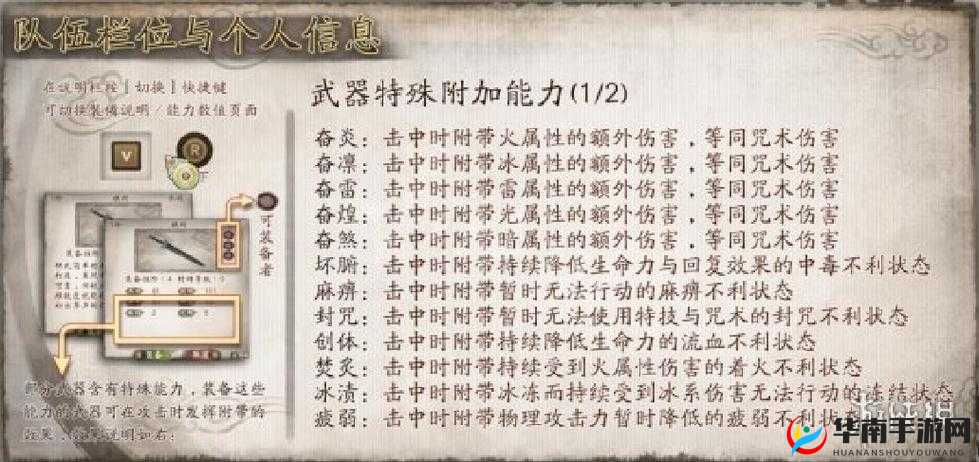 队伍栏位与个人信息
在说明栏按［切换］快捷键
可切换装备说明／能力数值页面
V
R
可装备者
部分武器含有特殊能力，装备这些
能力的武器可在攻击时发挥附带的
效果，效果说明如右：
武器特殊附加能力(1/2)
奋炎：击中时附带火属性的额外伤害，等同咒术伤害
奋凛：击中时附带冰属性的额外伤害，等同咒术伤害
奋雷：击中时附带雷属性的额外伤害，等同咒术伤害
奋煌：击中时附带光属性的额外伤害，等同咒术伤害
奋煞：击中时附带暗属性的额外伤害，等同咒术伤害
坏腑：击中时附带持续降低生命力与回复效果的中毒不利状态
麻痹：击中时附带暂时无法行动的麻痹不利状态
封咒：击中时附带暂时无法使用特技与咒术的封咒不利状态
创体：击中时附带持续降低生命力的流血不利状态
焚炙：击中时附带持续受到火属性伤害的着火不利状态
冰渍：击中时附带冰冻而持续受到冰系伤害无法行动的冻结状态
疲弱：击中时附带物理攻击力暂时降低的疲弱不利状态
华南手游网
HUANANSHOUYOUWANG